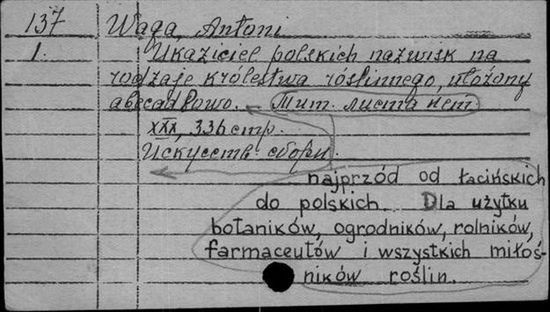 137 Waga, Antoni
1. Ukaziciel polskich nazwisk na
rodzaje królestwa róslinnego, ułożony
abecadłowo. Тит. листа нет
XXX, 336 стр.
Искусств. сборн.
najprzód od łacińskich
do polskich. Dla użytku
botaników, ogrodników, rolników,
farmaceutów i wszystkich miłoś-
ników roślin.